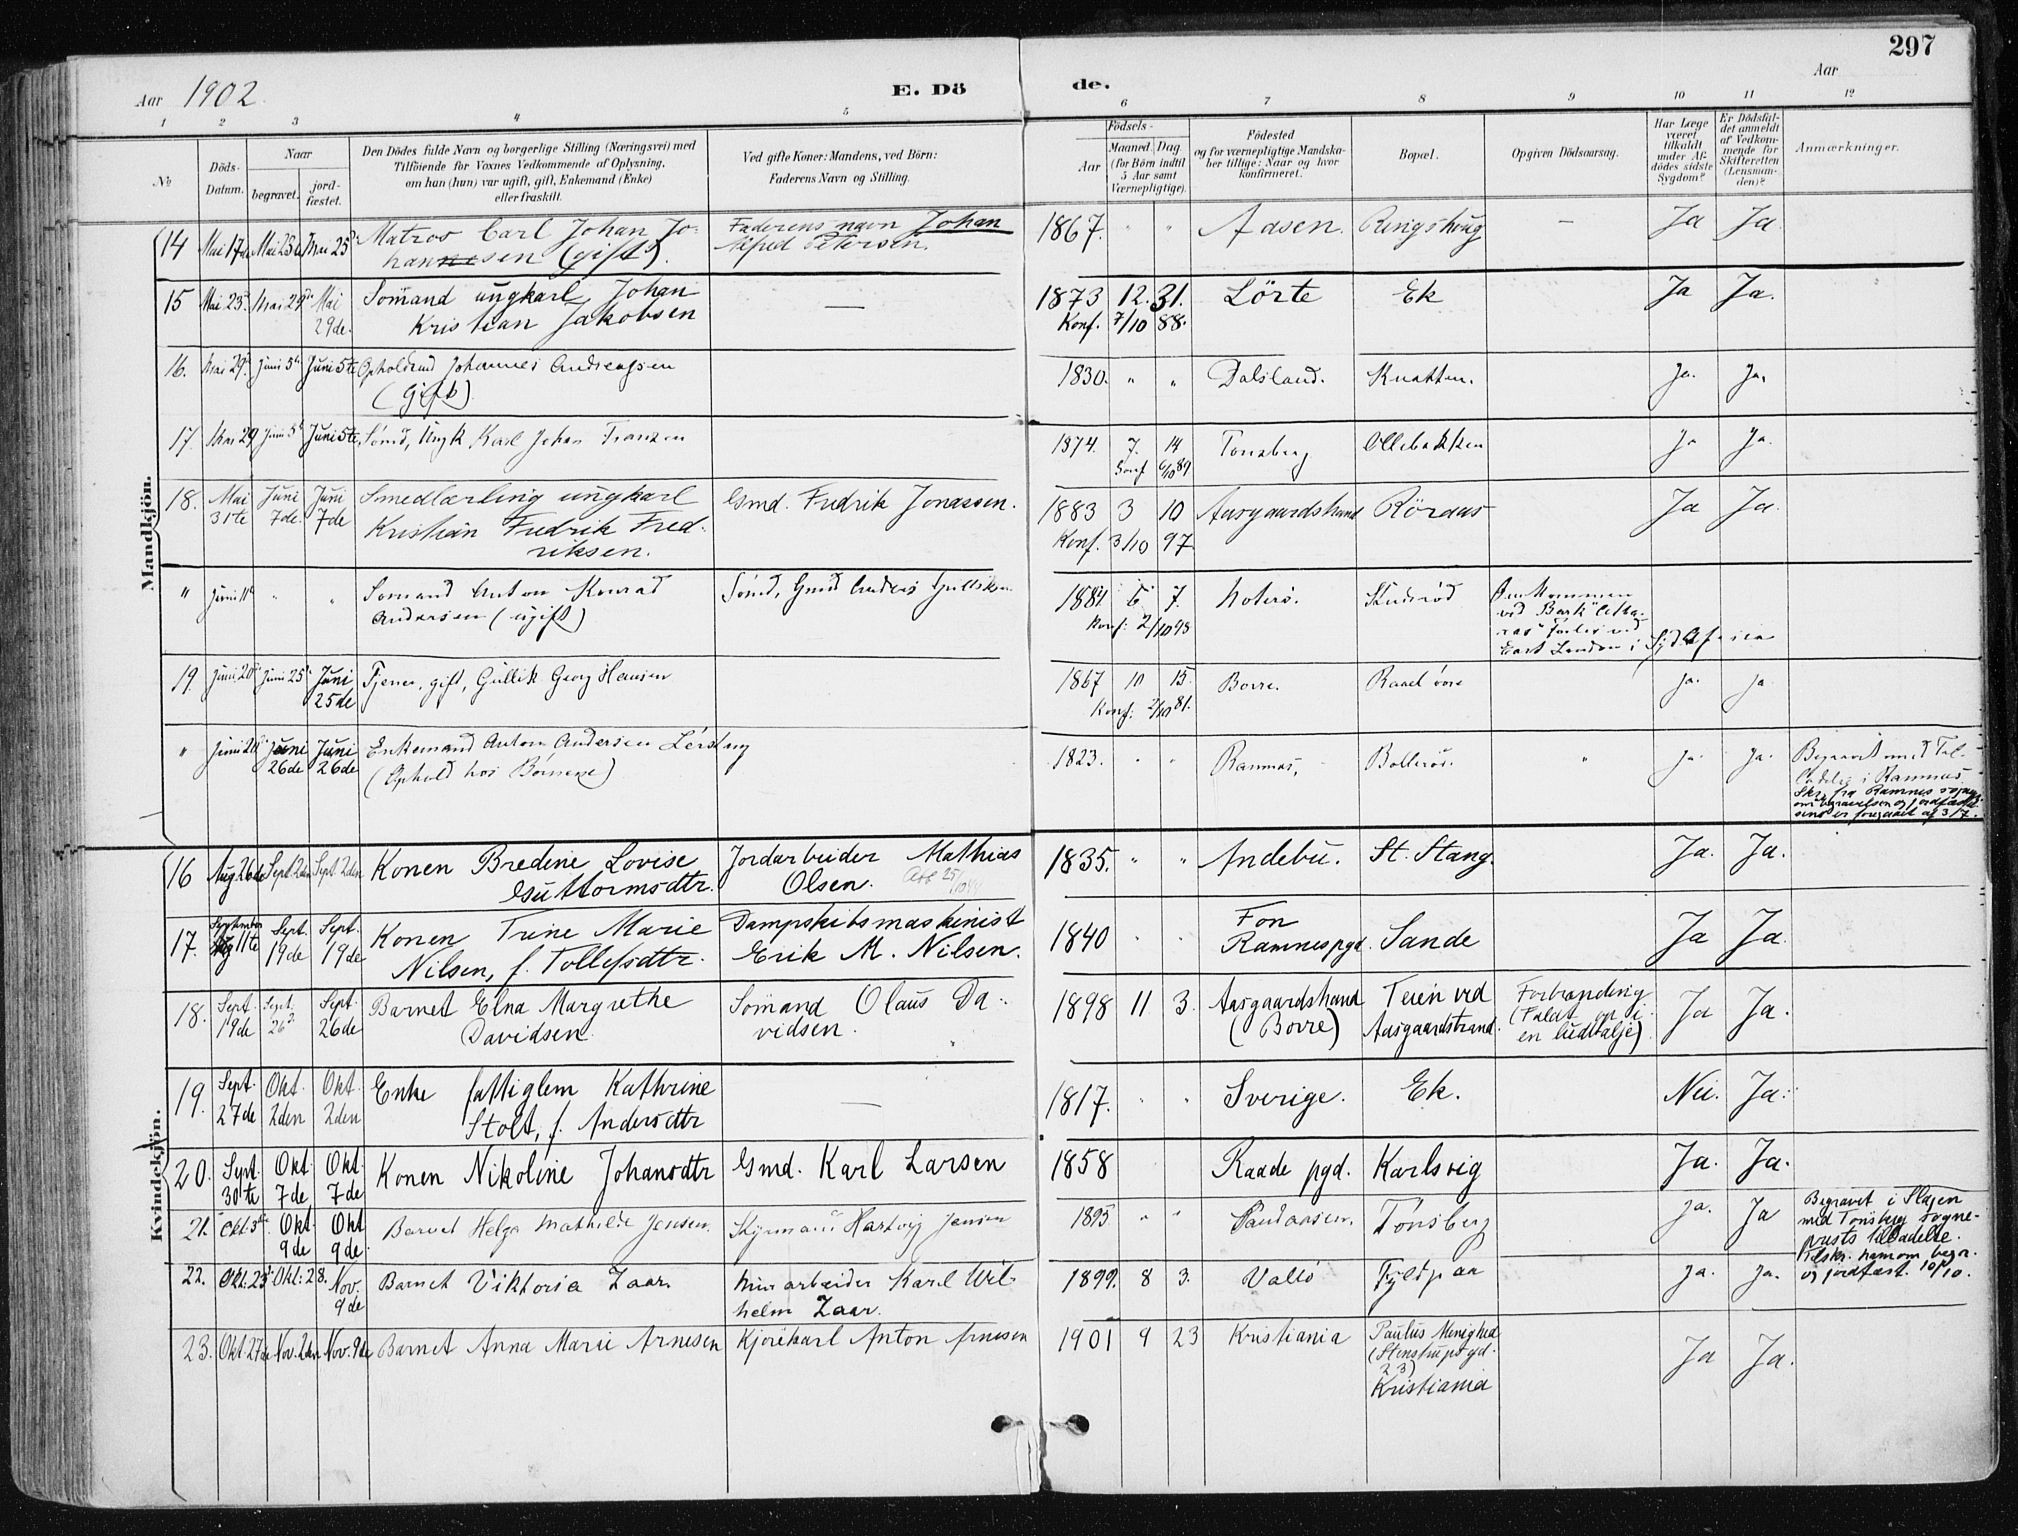 297
Aar 1902. E. Dö de. Aar
1 2 3 4 5 6 7 8 9 10 11 12
№
Döds-Datum.
Naar
begravet.
jord-fæstet.
Den Dödes fulde Navn og borgerlige Stilling (Næringsvei) med
Tilföiende for Voxnes Vedkommende af Oplysning,
om han (hun) var ugift, gift, Enkemand (Enke)
eller fraskilt.
Ved gifte Koner: Mandens, ved Börn:
Faderens Navn og Stilling.
Födsels-
Aar
Maaned. Dag
(for Börn indtil
5 Aar samt
Værnepligtige).
Födested
og for værnepligtige Mandskaber tillige: Naar og hvor
konfirmeret.
Bopæl.
Opgiven Dödsaarsag.
Har Læge
været
tilkaldt
under Afdödes sidste
Sygdom?
Er Dödsfaldet anmeldt
af Vedkommende for
Skifteretten
(Lensmanden)?
Anmærkninger.
Mandkjön.
14 Mai 17de Mai 25de Mai 25de Matros Carl Johan Jo- Faderens navn Johan 1867. " " Aasen. Ringshoug — Ja Ja
hannesen (gift). Alfred Petersen.
15 Mai 23de Mai 29de Mai Sömand ungkarl Johan — 1873 12. 31. Lörte Ek Ja Ja.
29de. Kristian Jakobsen Konf. 7/10 88.
16. Mai 29de Juni 5te Juni 5te Johannes Andreassen 1830. " " Dalsland. Knatten. Ja. Ja.
(gift)
17. Mai 29 Juni 5te Juni 5te Sömd, Ungk Karl Johan Franzen 1874. 7. 14 Tonsberg Ollebakken Ja Ja.
Konf 6/10 89
18. Mai Juni Juni Smedlærling ungkarl Gmd. Fredrik Jonassen. 1883 3 10 Aasgaardstrand Röraas Ja Ja.
31te 7de. 7de Kristian Fredrik Fred- Konf. 3/10 97
riksen.
" Juni 11te " " Sömand Anton Konrad Sömd, Gmd Anders 7.
Andersen (ugift) Konf: 2/10 98
Omkommen
ved Bark
forlis ved
East London i Syd Africa
19. Juni 20de Juni 25de Juni Tjener, gift, Gullik Georg Hansen 1867 10 15. Borre. Ja. Ja
25de Konf: 2/10 81.
" Juni Juni Juni Enkemand Anton Andersen 1823. " " Ramnæs, " Ja. Ja. Begravet med Til-
26de 26de (Ophold hos Börnene) ladelse i Ramnæs.
Skr. fra Ramnes
Kvindekjön.
16 Aug 26de Sept 2den Sept. 2den Konen Bredine Lovise Jordarbeider Mathias 1835. " " Andebu. St. Stang. Ja. Ja.
Guttormsdtr. Olsen.
17. September Sept. Sept. Konen Trine Marie Dampskibsmaskinist 1840 " " Fon Sande Ja Ja.
Aug 11te 19de 19de Nilsen, f. Tollefsdtr. Erik M. Nilsen. Ramnes pgd.
18. Sept. Sept. Sept. Barnet Elna Margrethe Sömand Olaus Da- 1898 11 3. Aasgaardstrand Teien ved Forbrænding Ja Ja.
19de 26de 26de Davidsen. vidsen. (Borre) Aasgaardstrand. (Faldt op i
en ludbalje)
19. Sept. Okt. Okt. Enke fattiglem Kathrine — 1817. " " Sverige. Ek. Nei. Ja.
27de 2den 2den Stolt, f. Andersdtr
20. Sept. Okt. Okt. Konen Nikoline Johansdtr Gmd. Karl Larsen 1858 Raade pgd. Karlsvig Ja. Ja.
30te 7de 7de
21. Okt 3de Okt. Okt Barnet Helga Mathilde Jensen. Hartvig Jensen 1895 " " Tönsberg Ja. Ja Begravet i Slagen
9de 9de. med Tönsberg sogne-
prests tilladelse.
Tilskr. ham om begr.
og jordfæst. 10/10.
22. Okt. 23de Okt: 28. Nov. Barnet Viktoria Zaar. Murarbeider Karl Wil- 1899. 8 3. Vallö Fyldpaa Ja. Ja.
9de helm Zaar.
23. Okt 27de Nov. 2den Nov. 9de Barnet Anna Marie Arnesen Kjörekarl Anton Arnesen 1901 9 23 Kristiania Paulus Menighed Ja Ja.
(Stenstrupsgd.
23)
Kristiania